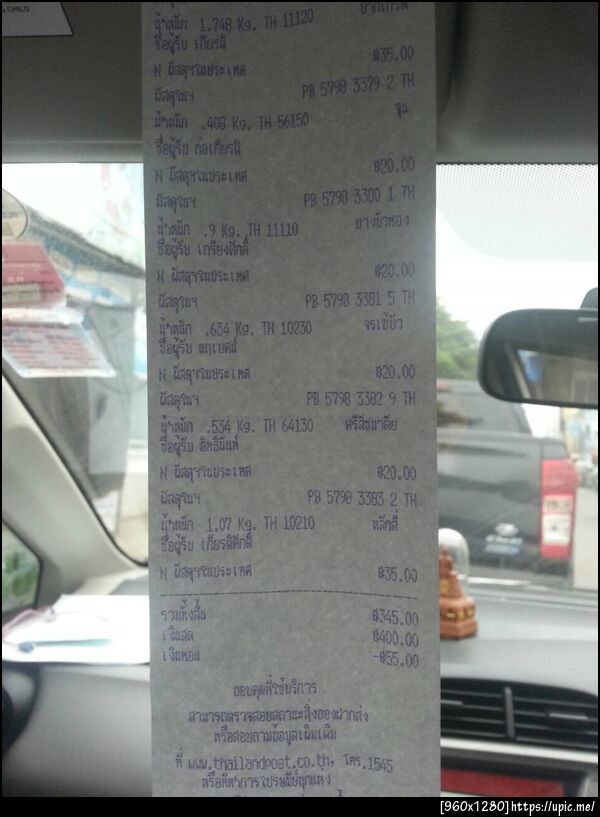 G CHILD
น้ำหนัก 1.748 Kg. TH 11120 ปากเกร็ด
ชื่อผู้รับ เกียรติ
N พัสดุฯในประเทศ ฿35.00
พัสดุฯ PB 5798 3379 2 TH
น้ำหนัก .408 Kg. TH 56150 จุน
ชื่อผู้รับ ก่อเกียรติ
N พัสดุฯในประเทศ ฿20.00
พัสดุฯ PB 5798 3380 1 TH
น้ำหนัก .9 Kg. TH 11110 บางบัวทอง
ชื่อผู้รับ เกรียงศักดิ์
N พัสดุฯในประเทศ ฿20.00
พัสดุฯ PB 5798 3381 5 TH
น้ำหนัก .634 Kg. TH 10230 จรเข้บัว
ชื่อผู้รับ นฤเบศน์
N พัสดุฯในประเทศ ฿20.00
พัสดุฯ PB 5798 3382 9 TH
น้ำหนัก .534 Kg. TH 64130 ศรีสัชนาลัย
ชื่อผู้รับ อิทธินันท์
N พัสดุฯในประเทศ ฿20.00
พัสดุฯ PB 5798 3383 2 TH
น้ำหนัก 1.07 Kg. TH 10210 หลักสี่
ชื่อผู้รับ เกียรติศักดิ์
N พัสดุฯในประเทศ ฿35.00
รวมทั้งสิ้น ฿345.00
เงินสด ฿400.00
เงินทอน -฿55.00
ขอบคุณที่ใช้บริการ
สามารถตรวจสอบสถานะสิ่งของฝากส่ง
หรือสอบถามข้อมูลเพิ่มเติม
ที่ www.thailandpost.co.th, โทร.1545
หรือที่ทำการไปรษณีย์ทุกแห่ง
[960x1280]https://upic.me/